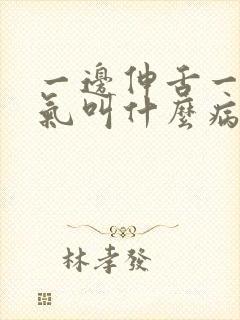 一邊伸舌一
氣叫什麼病
林孝發